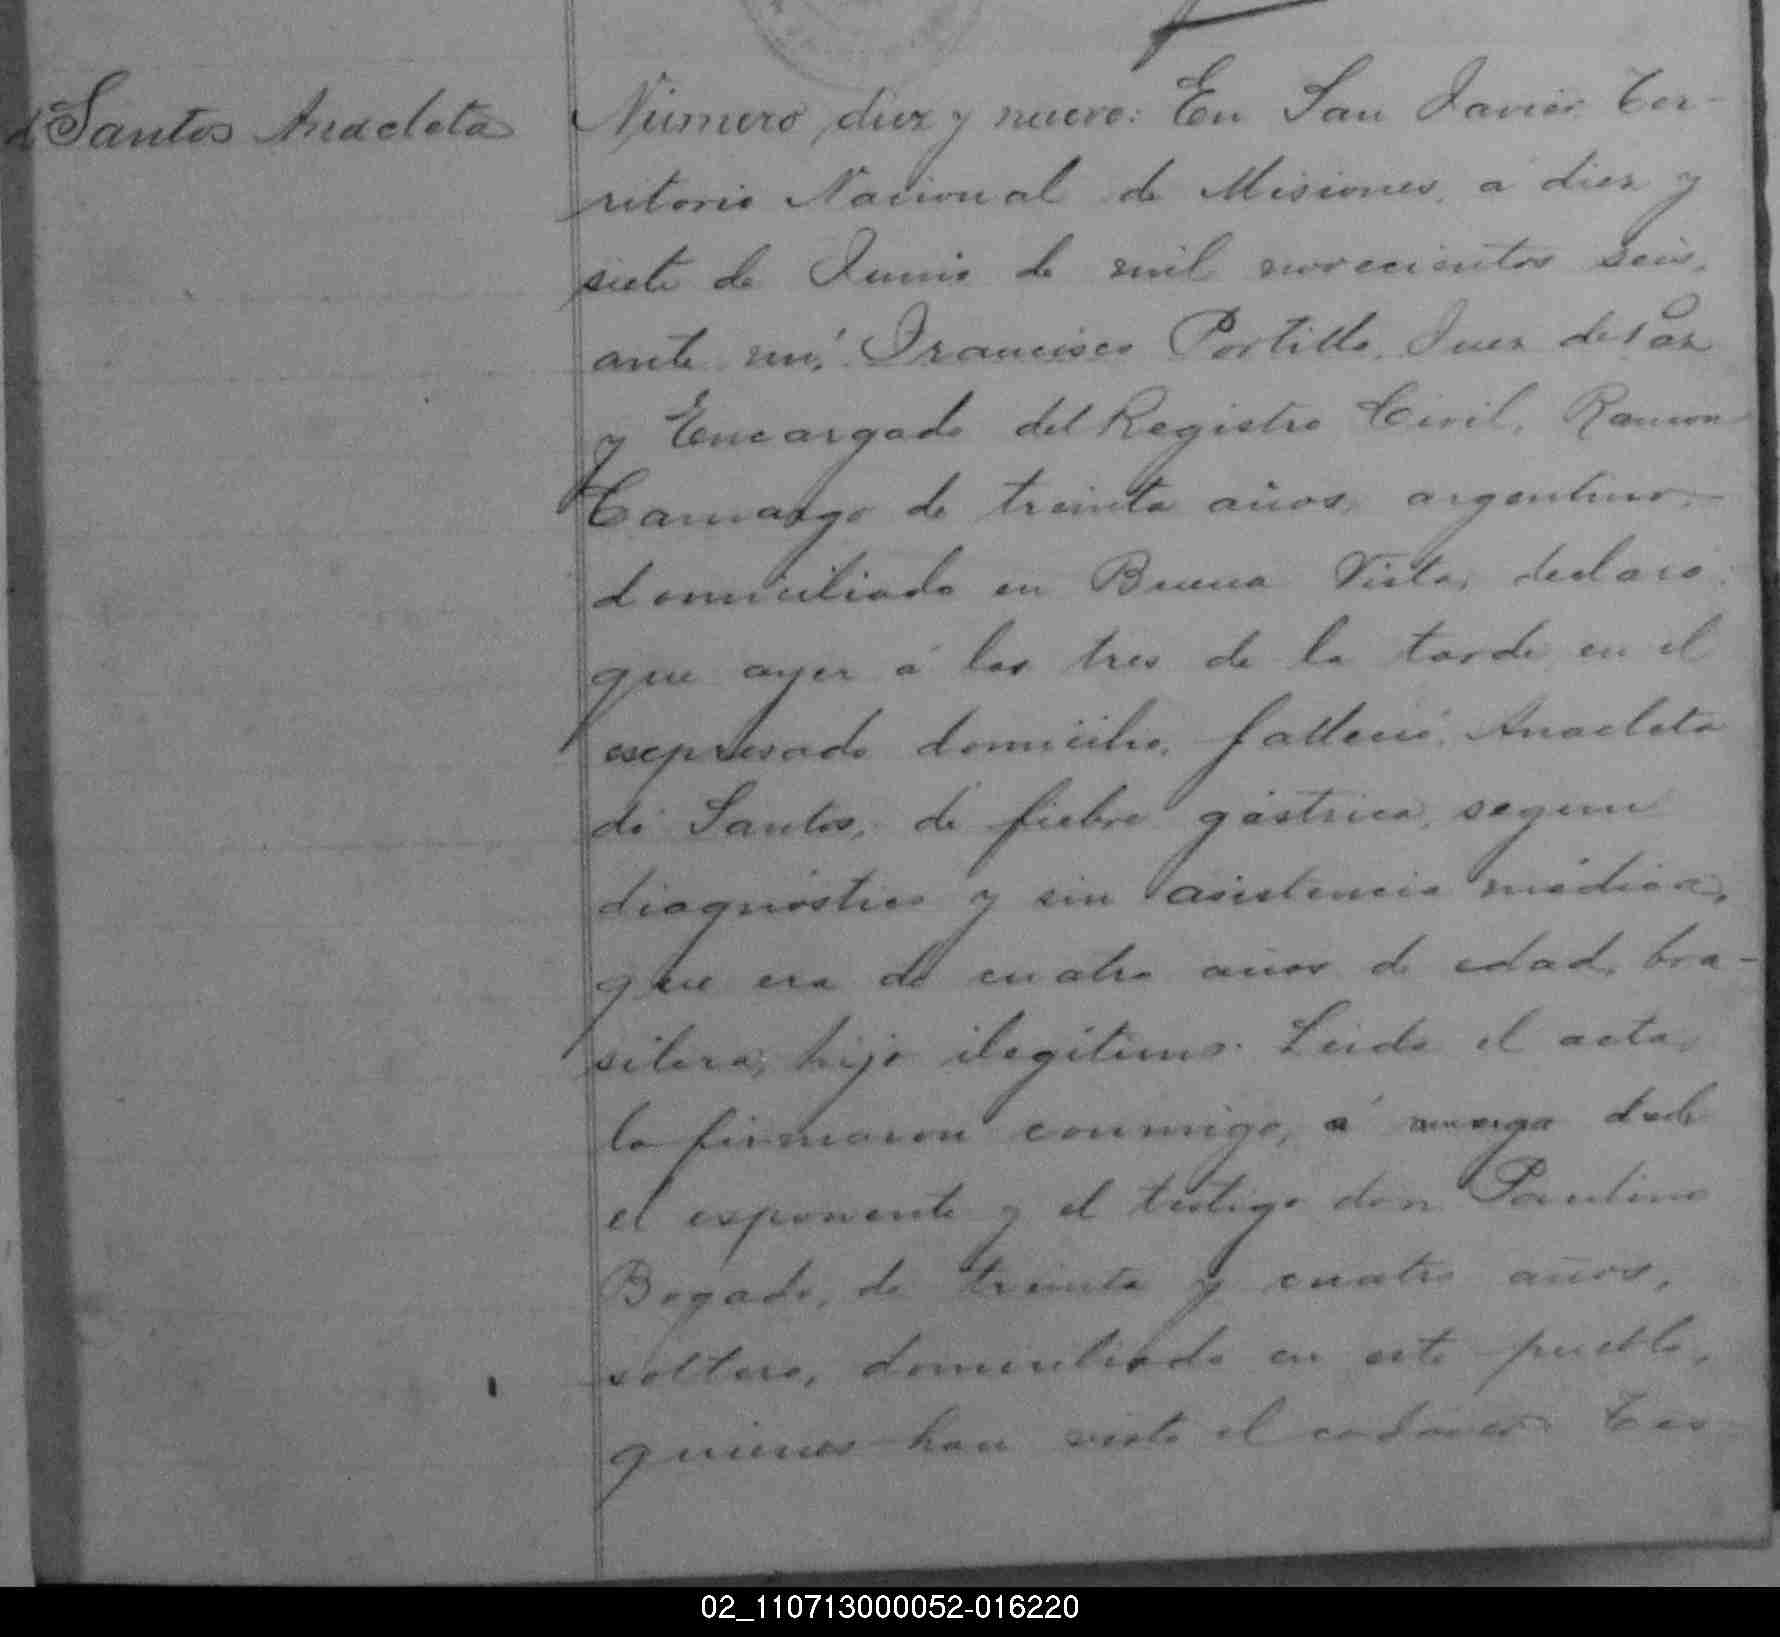 d Santos Anacleta
Número diez y nueve: En San Javier Ter-
ritorio Nacional de Misiones, á diez y
siete de Junio de mil novecientos seis,
ante mí, Francisco Portillo, Juez de Paz
y Encargado del Registro Civil, Ramon
Camargo de treinta años, argentino,
domiciliado en Buena Vista, declaró
que ayer á las tres de la tarde en el
expresado domicilio, falleció Anacleta
do Santos, de fiebre gástrica, segun
diagnóstico y sin asistencia médica,
que era de cuatro años de edad, bra-
silera, hijo ilegítimo. Leida el acta,
la firmaron conmigo, á ruego del
el exponente y el testigo don Paulino
Bogado, de treinta y cuatro años,
soltero, domiciliado en este pueblo,
quienes han visto el cadáver. Tes
02_110713000052-016220